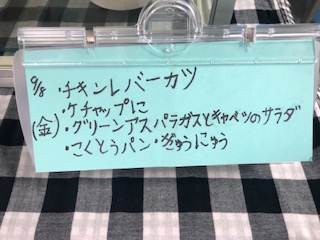 9/8 ・チキンレバーカツ
・ケチャップに
(金)・グリーンアスパラガスとキャベツのサラダ
・こくとうパン・ぎゅうにゅう